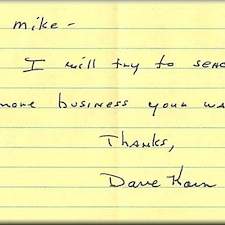 mike -
I will try to send
more business your wa
Thanks,
Dave Korn